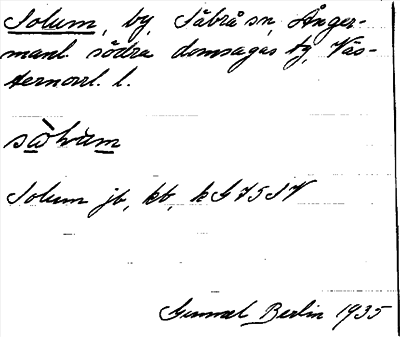 Solum, by, Säbrå sn, Ånger-
manl. södra domsagas tg, Väs-
ternorrl. l.
Solum jb, kb, k G V 5 S V
Gunnel Berlin 1935